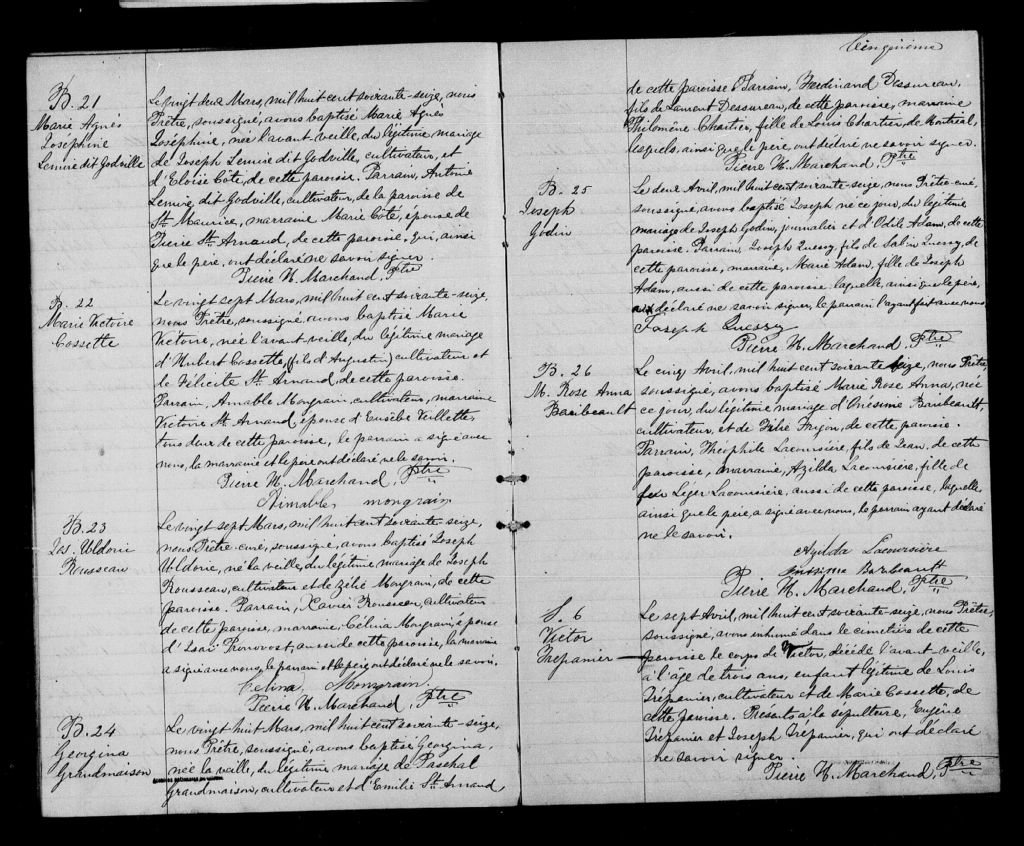 B. 21
Marie Agnès
Joséphine
Lemire dit Godville
Le vingt deux Mars, mil huit cent soixante-seize, nous
Prêtre, soussigné, avons baptisé Marie Agnès
Joséphine, née l'avant-veille, du légitime mariage
de Joseph Lemire dit Godville, cultivateur, et
d'Eloïse Côté, de cette paroisse. Parrain, Antoine
Lemire dit Godville, cultivateur, de la paroisse de
St. Maurice, marraine Marie Côté, épouse de
Pierre St. Arnaud, de cette paroisse, qui, ainsi
que le père, ont déclaré ne savoir signer.
Pierre H. Marchand, Ptre
B. 22
Marie Victoire
Cossette
Le vingt sept Mars, mil huit cent soixante-seize,
nous Prêtre, soussigné, avons baptisé Marie
Victoire, née l'avant-veille, du légitime mariage
d'Hubert Cossette, (fils d'Augustin) cultivateur et
de Félicité St. Arnaud, de cette paroisse.
Parrain, Aimable Mongrain, cultivateur, marraine
Victoire St. Arnaud, épouse d'Eusèbe Veillette,
tous deux de cette paroisse, le parrain a signé avec
nous, la marraine et le père ont déclaré ne le savoir.
Pierre H. Marchand, Ptre
Aimable mongrain
B. 23
Jos. Uldoric
Rousseau
Le vingt sept Mars, mil huit cent soixante-seize,
nous Prêtre-curé, soussigné, avons baptisé Joseph
Uldoric, né la veille, du légitime mariage de Joseph
Rousseau, cultivateur et de Zélie Mongrain, de cette
paroisse. Parrain, Xavier Rousseau, cultivateur
de cette paroisse, marraine, Célina Mongrain, épouse
d'Isaïe Pronovost, aussi de cette paroisse, la marraine
a signé avec nous, le parrain et le père ont déclaré ne le savoir.
Celina Mongrain.
Pierre H. Marchand, Ptre
B. 24
Georgina
Grandmaison
Le vingt huit Mars, mil huit cent soixante-seize,
nous Prêtre, soussigné, avons baptisé Georgina,
née la veille, du légitime mariage de Paschal
Grandmaison, cultivateur et d'Emilie St. Arnaud,
Cinquième
de cette paroisse. Parrain, Ferdinand Dessureau,
fils de Laurent Dessureau, de cette paroisse, marraine
Philomène Chartier, fille de Louis Chartier, de Montréal,
lesquels, ainsi que le père, ont déclaré ne savoir signer.
Pierre H. Marchand, Ptre
B. 25
Joseph
Godin
Le deux Avril, mil huit cent soixante-seize, nous Prêtre-curé,
soussigné, avons baptisé Joseph, né ce jour, du légitime
mariage de Joseph Godin, journalier et d'Odile Adam, de cette
paroisse. Parrain, Joseph Quessy, fils de Sabin Quessy, de
cette paroisse, marraine, Marie Adam, fille de Joseph
Adam, aussi de cette paroisse, laquelle, ainsi que le père,
déclaré ne savoir signer, le parrain l'ayant fait avec nous.
Joseph Quessy
Pierre H. Marchand, Ptre
B. 26
M. Rose Anna
Baribeault
Le cinq Avril, mil huit cent soixante seize, nous Prêtre,
soussigné, avons baptisé Marie Rose Anna, née
ce jour, du légitime mariage d'Onésime Baribeault,
cultivateur, et de Frugon, de cette paroisse.
Parrain, Théophile Lacoursière, fils de Jean, de cette
paroisse, marraine, Azilda Lacoursière, fille de
feu Léger Lacoursière, aussi de cette paroisse, laquelle,
ainsi que le père, a signé avec nous, le parrain ayant déclaré
ne le savoir.
Azilda Lacoursière
Baribeault
Pierre H. Marchand, Ptre
S. 6
Victor
Trépanier
Le sept Avril, mil huit cent soixante-seize, nous Prêtre,
soussigné, avons inhumé dans le cimetière de cette
paroisse le corps de Victor, décédé l'avant-veille,
à l'âge de trois ans, enfant légitime de Louis
Trépanier, cultivateur et de Marie Cossette, de
cette paroisse. Présents à la sépulture, Eugène
Trépanier et Joseph Trépanier, qui ont déclaré
ne savoir signer.
Pierre H. Marchand, Ptre